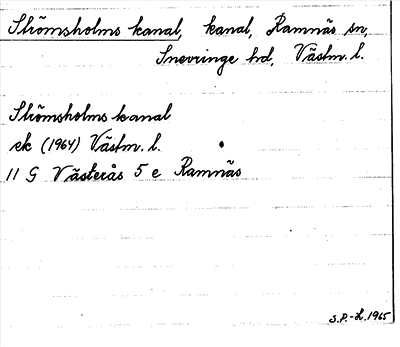 Strömsholms kanal, kanal, Ramnäs sn,
Snevringe hd, Västm. l.
Strömsholms kanal
ek (1964) Västm. l.
11 G Västerås 5 e Ramnäs
S.P.-H. 1965